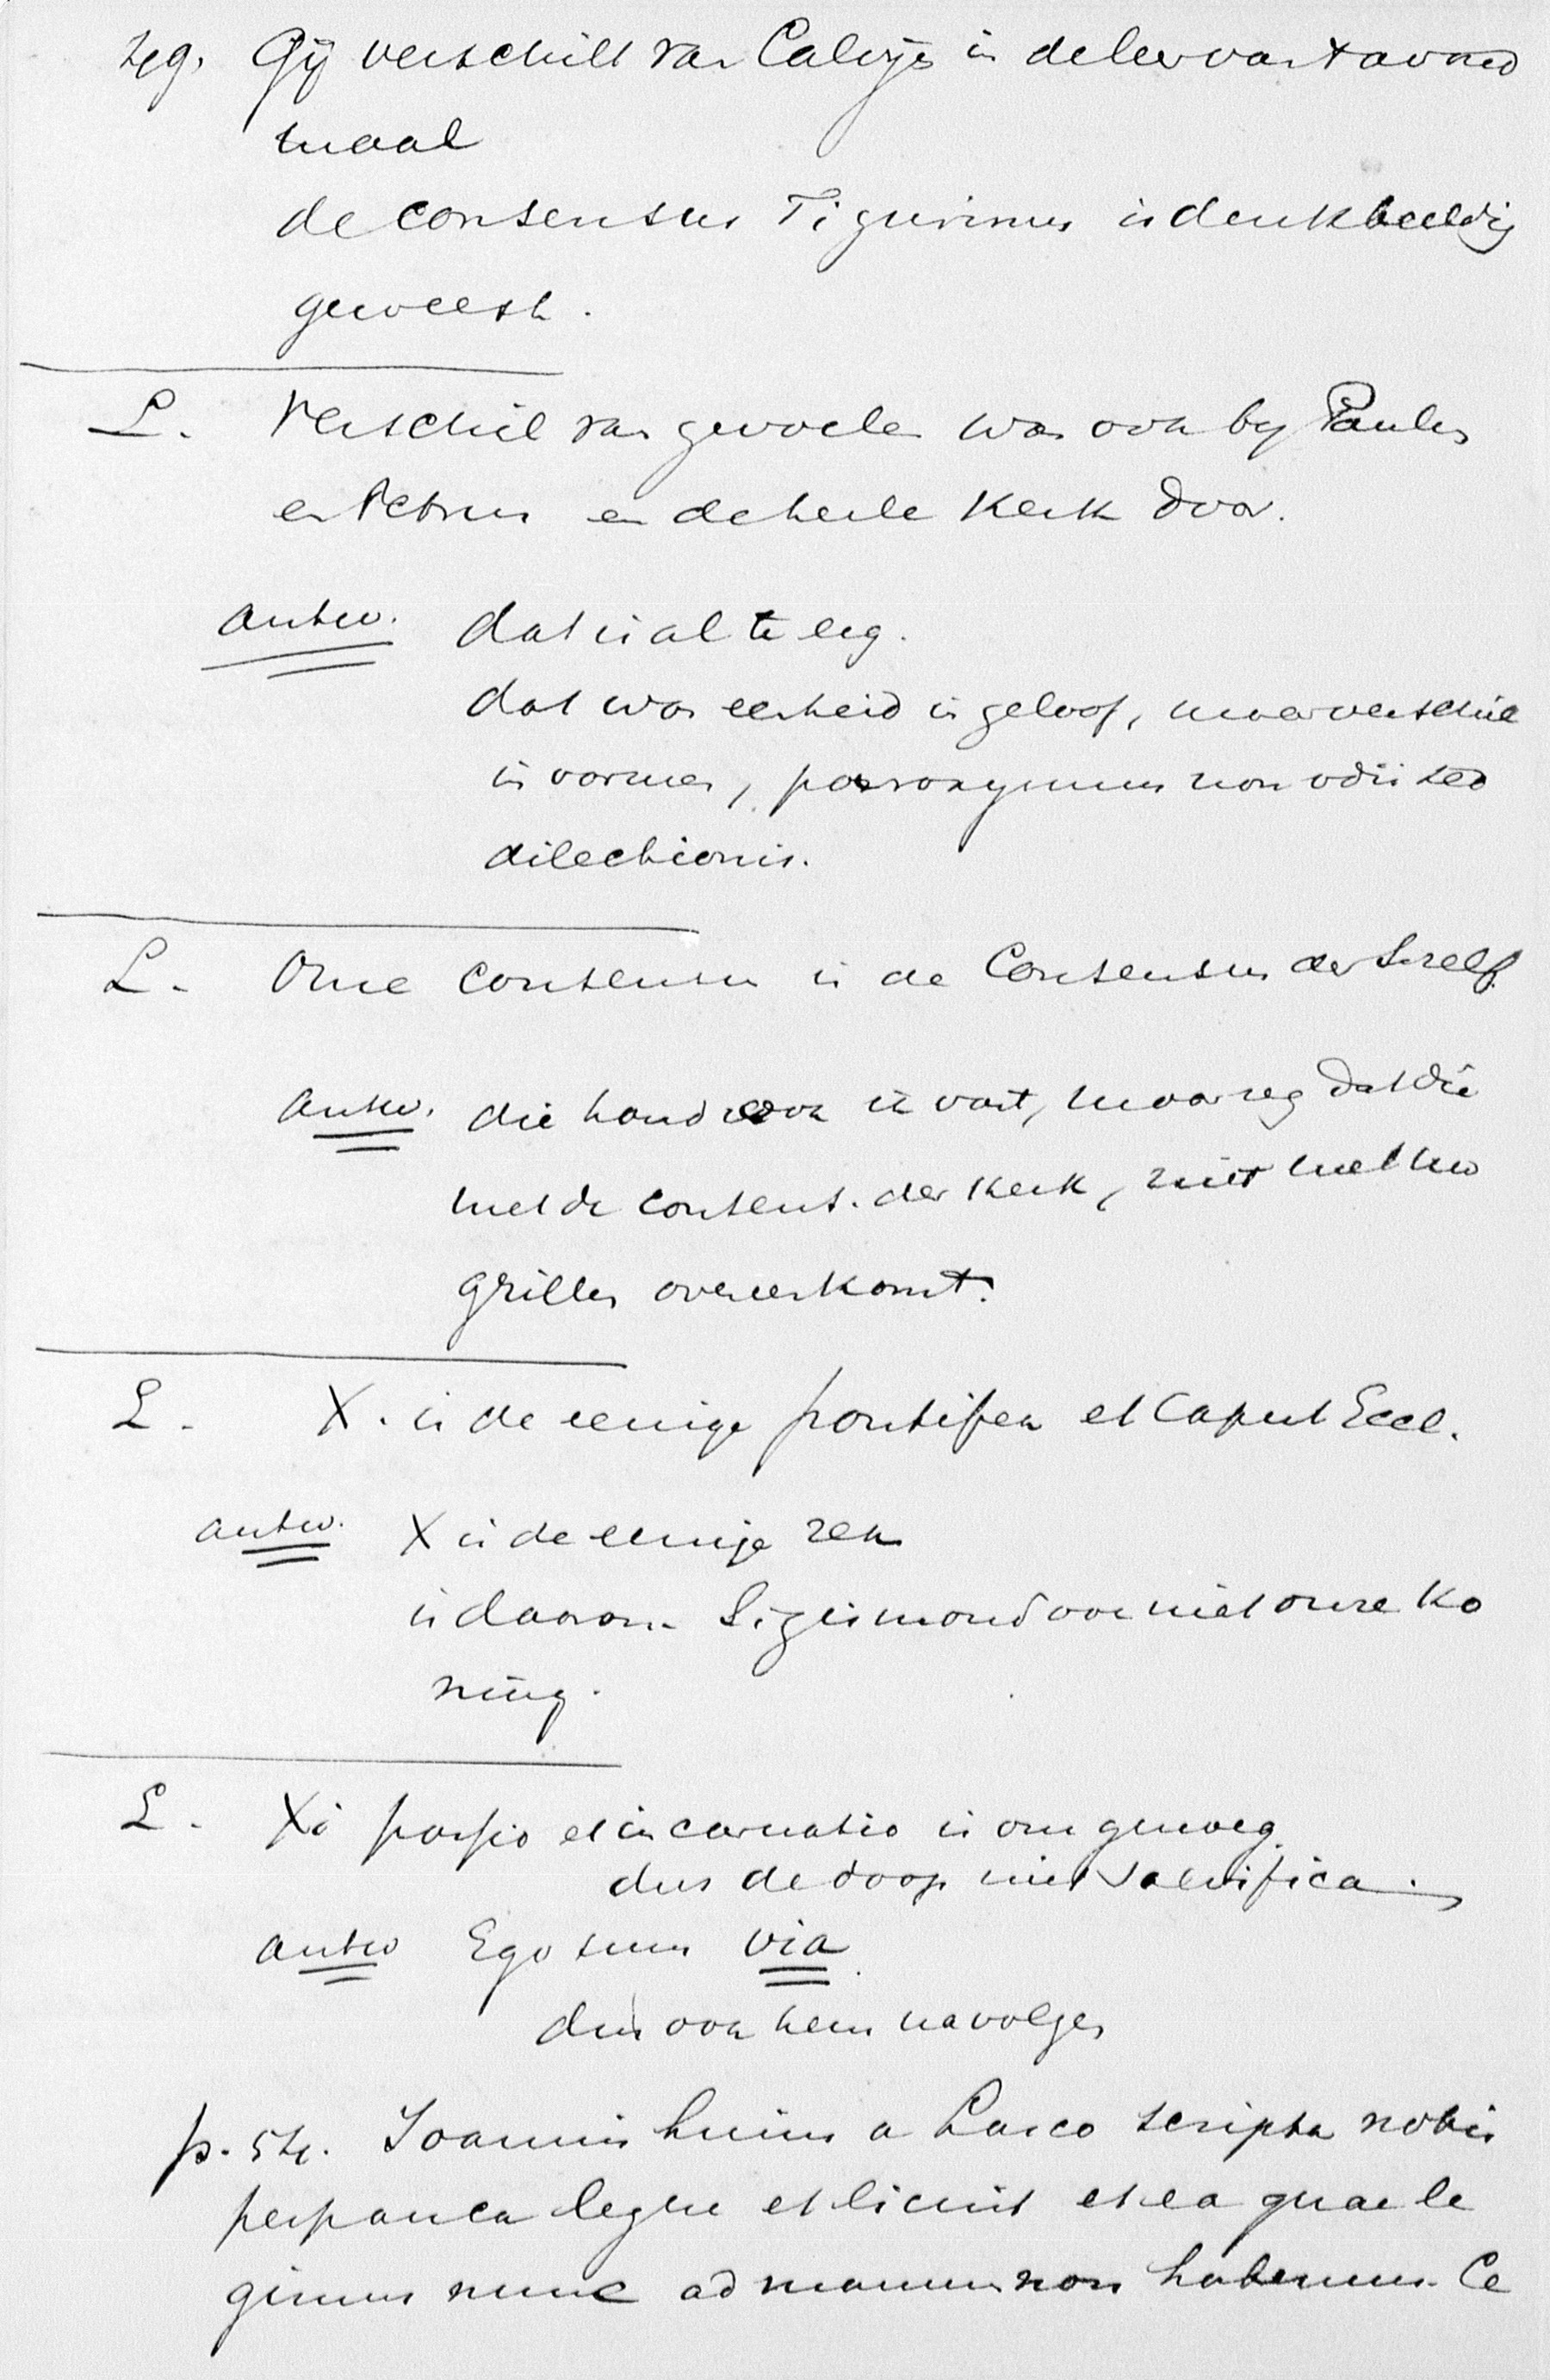 teg. Gij verschilt van Calvijn in de leer van t avond
maal
de consensus Tigurinus is denkbeeldig
geweest.
L. Verschil van gevoelen was ook by Paulus
en Petrus en de heele Kerk door.
antw. dat is al te erg.
dat was eenheid in geloof, maar verschil
in vormen, paroxysmus non odii sed
dilectionis.
L. Onze consensus is de Consensus der S. zelf.
antw. die houd ook ik vast, maar zeg dat die
met de consens. der Kerk, niet met uw
grillen overeenkomt.
L. X. is de eenige pontifex et Caput Eccl.
antw. X is de eenige rex
is daarom Sigismond ook niet onze Ko
ning.
L. Xi passio et incarnatio is ons genoeg.
dus de doop niet salvifica.
antw Ego sum via.
dus ook hem navolgen
p. 54. Joannis huius a Lasco scripta nobis
perpauca legere et licuit et ea quae le
gimus nunc ad manum non habemus. Ce